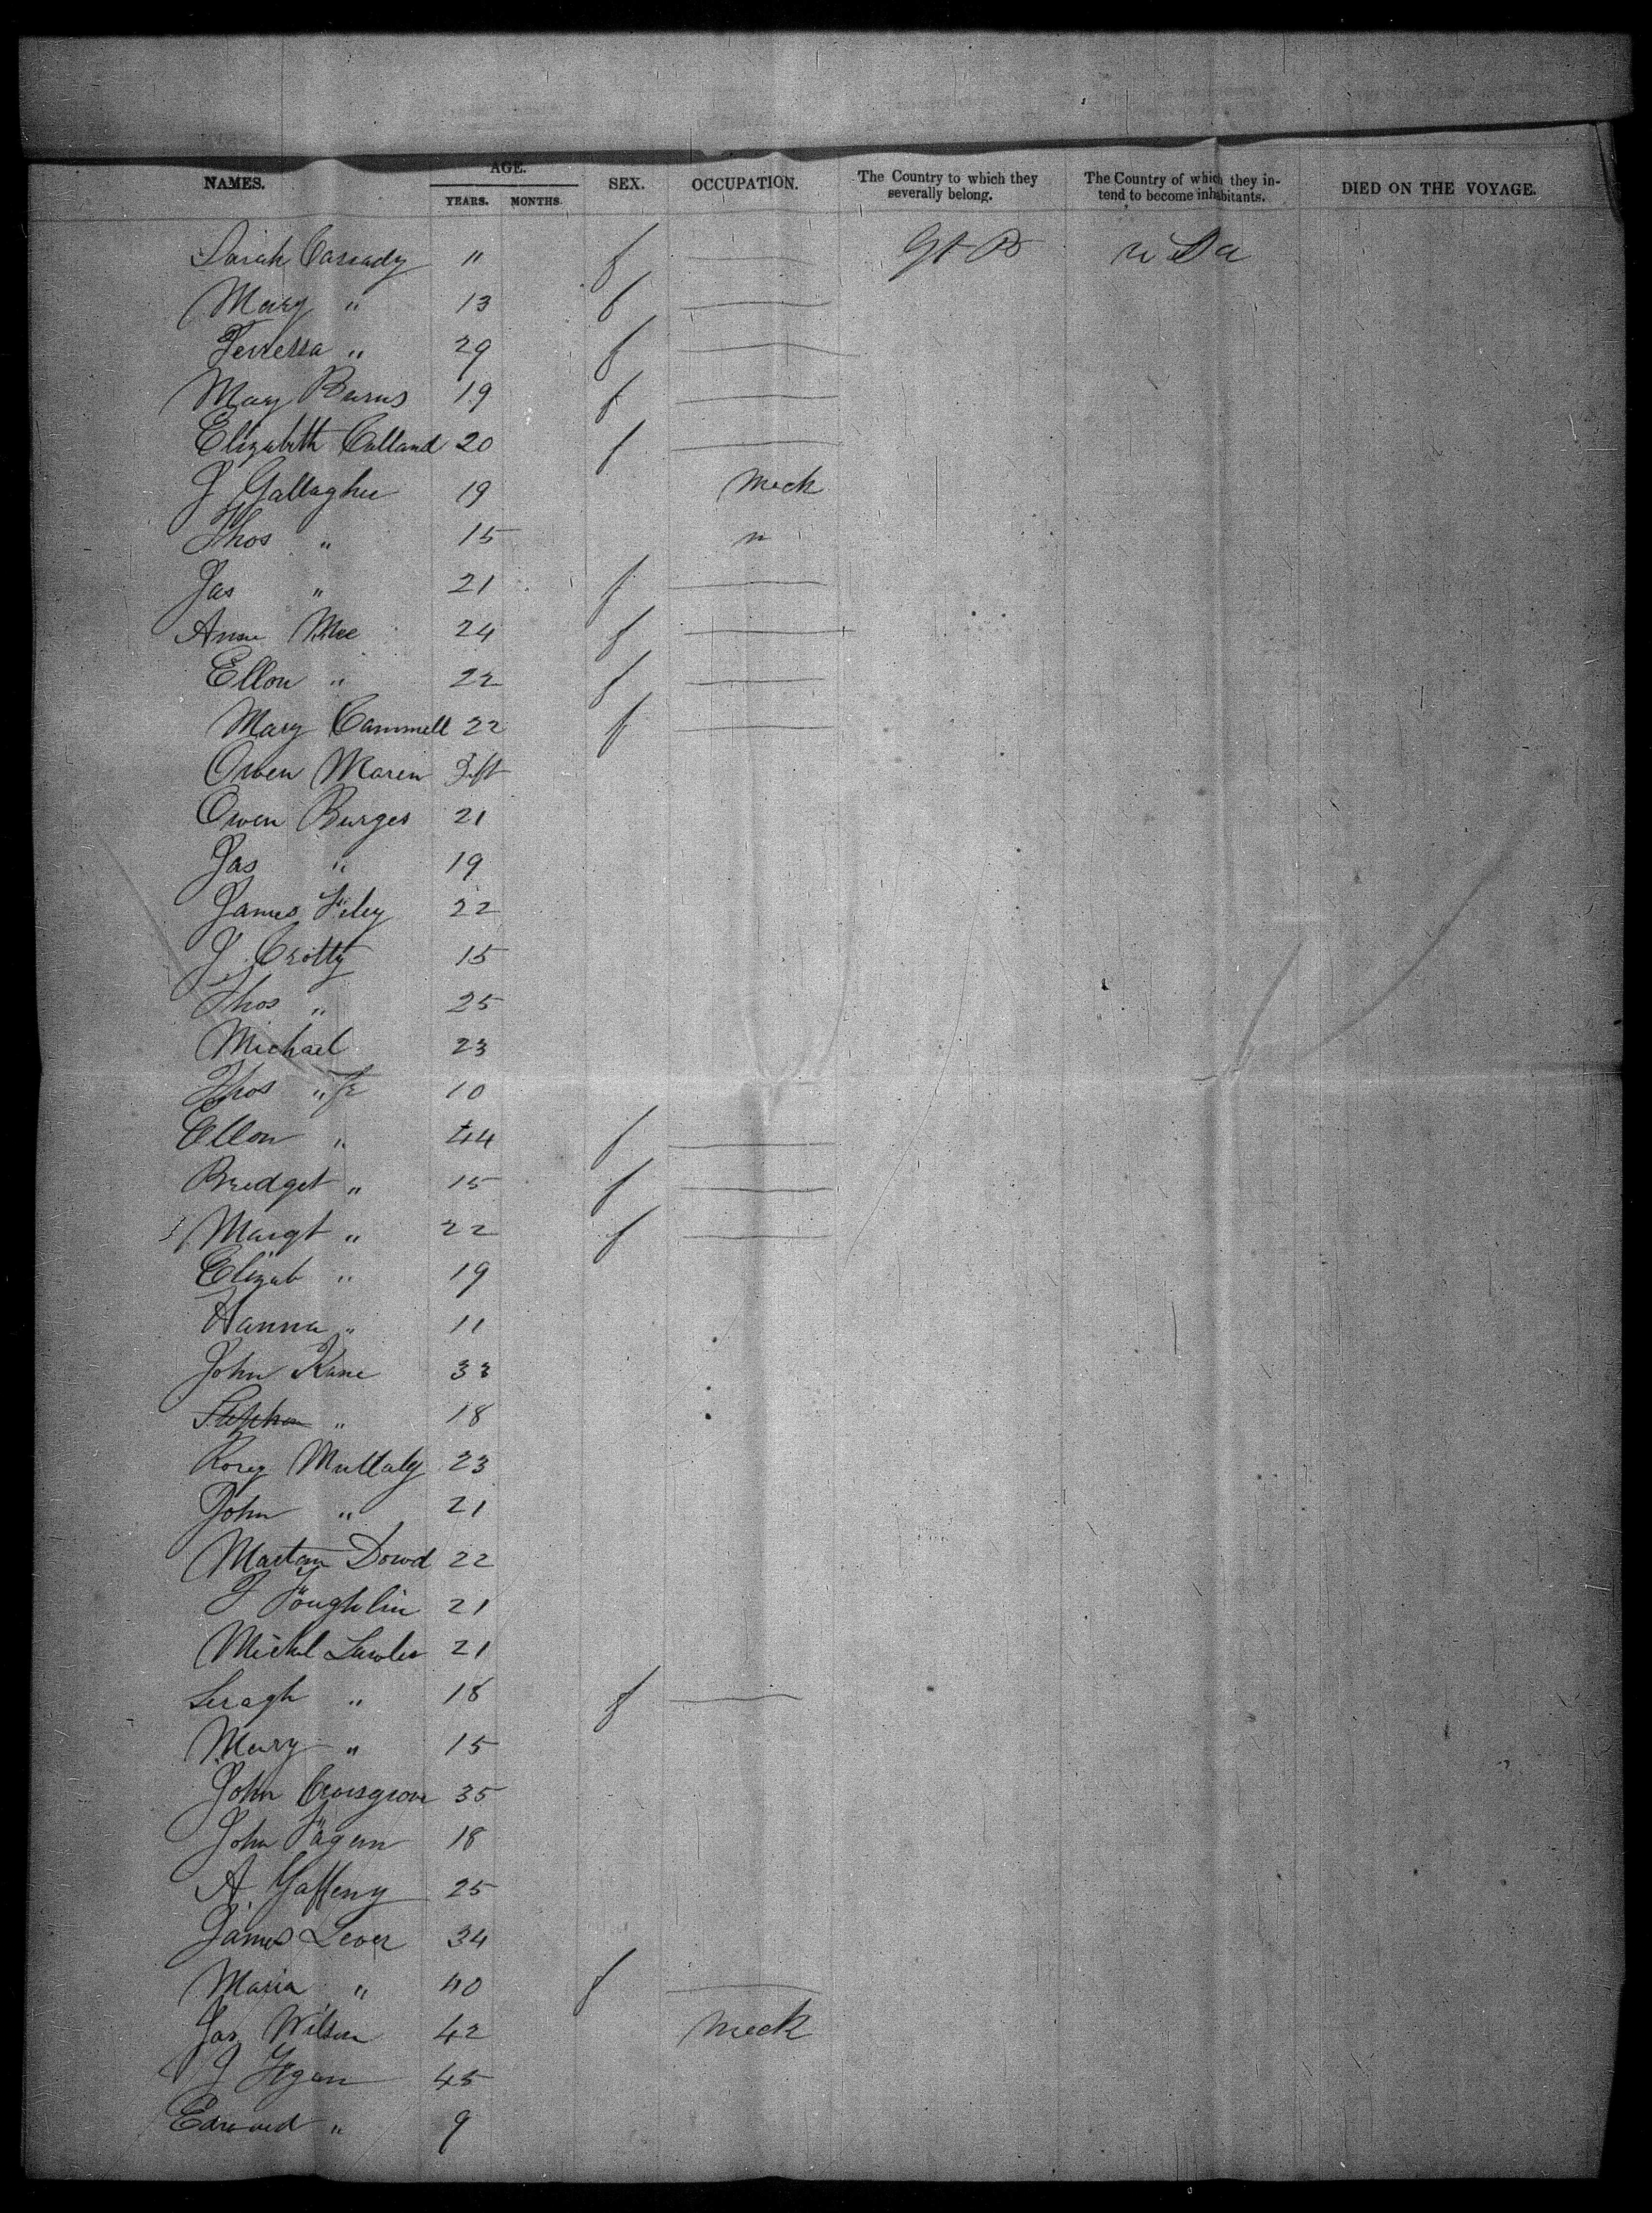 NAMES. AGE. SEX. OCCUPATION. The Country to which they severally belong. The Country of which they intend to become inhabitants. DIED ON THE VOYAGE.
YEARS. MONTHS
Sarah Cassady 11 f Gt B
Mary " 13 f
Terressa " 29 f
Mary Burns 19 f
Elizabeth Calland 20 f
J Gallagher 19 Mech
Thos " 15 "
Jas " 21 f
Anne Mee 24 f
Ellon " 22 f
Mary Cammell 22 f
Owen Maren
Owen Burges 21
Jas " 19
James Filey 22
J Crotty 15
Thos " 25
Michael 23
Thos " Jr 10
Ellon " 44 f
Bredget " 15 f
Margt " 22 f
Elizab " 19
Hanna " 11
John Kane 33
Stephen " 18
Rorey Mullaly 23
John " 21
Martain Dowd 22
F Foughlin 21
Michel Lawler 21
18 f
Mary " 15
John 35
John Fagan 18
A Gaffeny 25
James Lever 34
Maria " 40 f
Jas Wilson 42 Mech
J Figan 45
Edward " 9